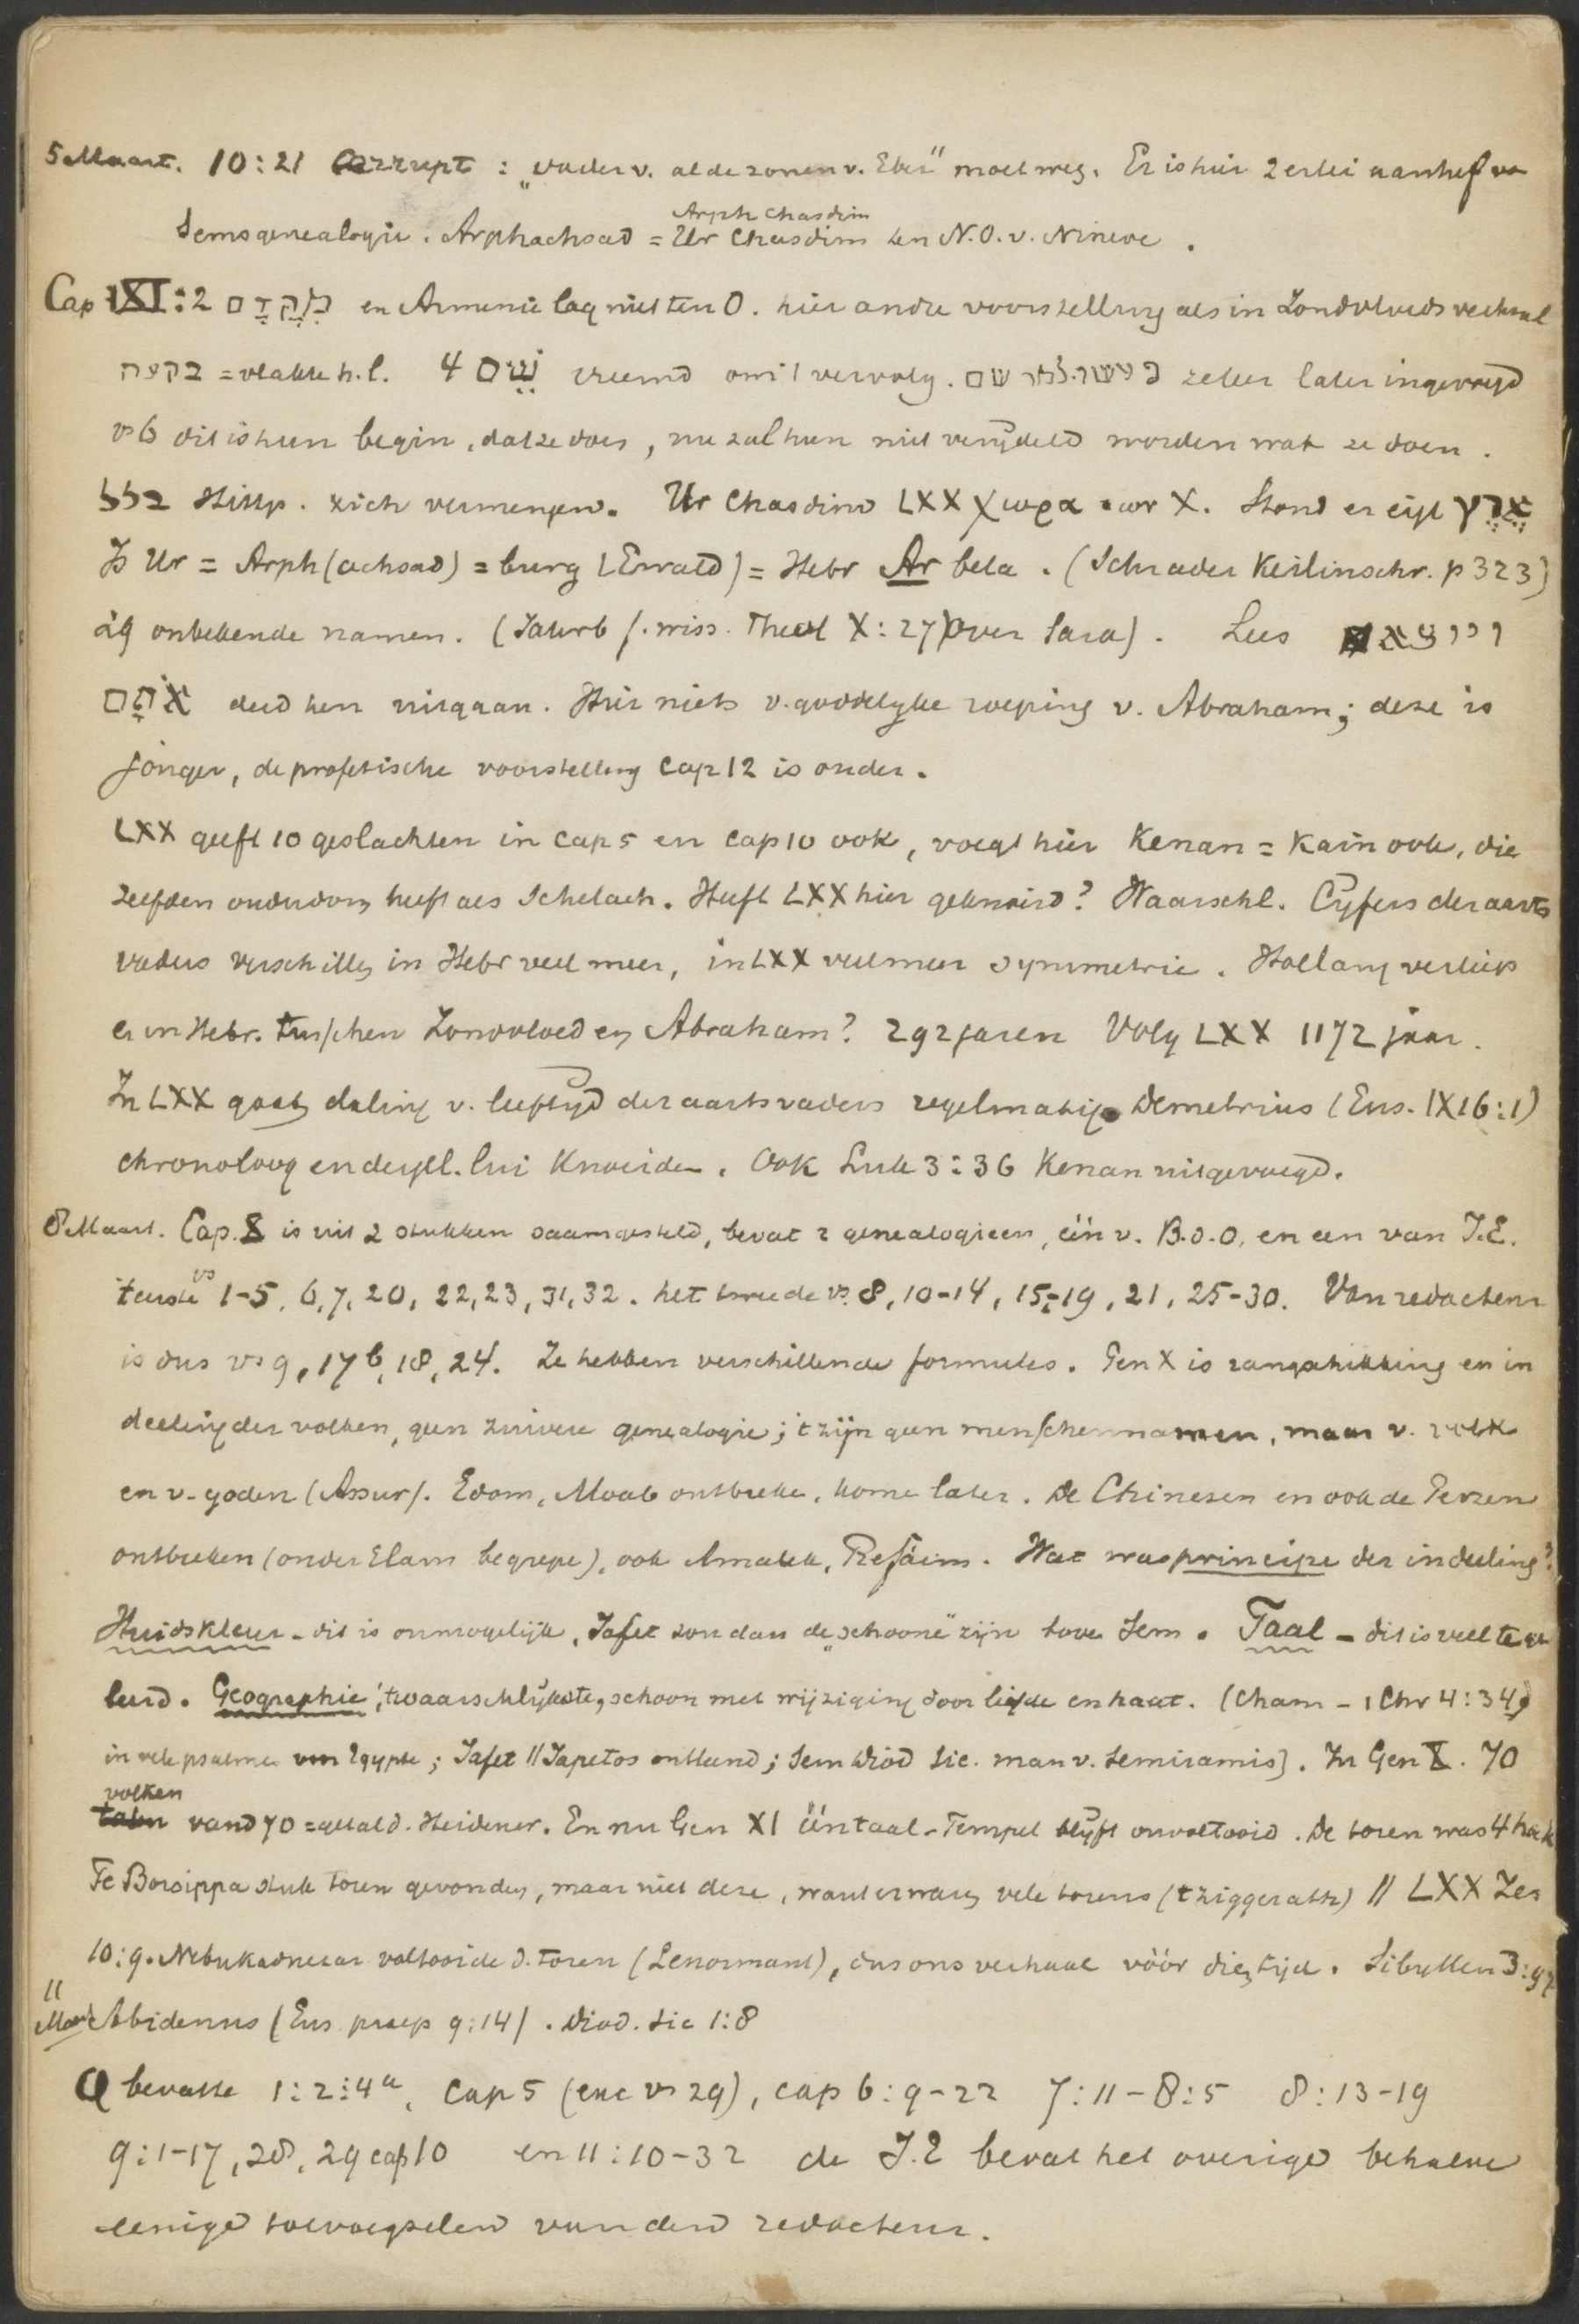 5 Maart. 10:21 Corrupt : „vader v. al de zonen v. Eber" moet weg. Er is hier 2erlei aanhef van
Arph Chasdim
Sems genealogie. Arphachsad = Ur Chasdim ten N.O. v. Nineve.
Cap XI:2 מקדם en Armenie lag niet ten O. hier andre voorstelling als in Zondvloeds verhaal
בקעה = vlakte h.l. 4 שם vreemd om 't vervolg. zeker later ingevoegd
vs 6 dit is hun begin, dat ze doen, nu zal hun niet verijdeld worden wat ze doen.
בלל Hitp. zich vermengen. Ur Chasdim LXX χωρα voor X. Stond er eigl ארץ
Is Ur = Arph(achsad) = burg (Ewald) = Hebr Arbela. (Schrader Keilinschr. p 323)
29 onbekende namen. (Jahrb f. wiss. Theol X:27) over Sara). Lees ויוצא
אתם deed hen uitgaan. Hier niets v. goddelyke roeping v. Abraham; deze is
jonger, de profetische voorstelling Cap 12 is ouder.
LXX geeft 10 geslachten in Cap 5 en Cap 10 ook, voegt hier Kenan = Kain ook, die
zelfden ouderdom heeft als Schelach. Heeft LXX hier geknoeid? Waarschl. Cyfers der aarts
vaders verschillen in Hebr veel meer, in LXX veel meer symmetrie. Hoe lang verliep
er in Hebr. tusschen Zondvloed en Abraham? 292 jaren Volg LXX 1172 jaar.
In LXX gaat daling v. leeftyd der aartsvaders regelmatig. Demetrius (Eus. IX 16:1)
chronoloog en dergel. lui knoeiden. Ook Luk 3:36 Kenan uitgevoegd.
8 Maart. Cap. X is uit 2 stukken saamgesteld, bevat 2 genealogieen, één v. B.d.O. en een van J.E.
't eerste vs 1-5, 6, 7, 20, 22, 23, 31, 32. het tweede vs. 8, 10-14, 15-19, 21, 25-30. Van redacteur
is dus vs 9, 17b, 18, 24. Ze hebben verschillende formules. Gen X is rangschikking en in
deeling der volken, geen zuivere genealogie; 't zijn geen menschennamen, maar v. volk
en v. goden (Assur). Edom, Moab ontbreke, kome later. De Chinesen en ook de Perzen
ontbreken (onder Elam begrepe), ook Amalek, Refaim. Wat was principe der indeeling?
Huidskleur - dit is onmogelijk, Jafet zou dan de „schoone" zijn bove Sem. Taal - dit is veel te ge
leerd. Geographie 't waarschlijkste, schoon met wijziging door liefde en haat. (Cham - 1 Chr 4:34)
in vele psalme van Egypte; Jafet // Japetos ontleend; Sem Diod Sic. man v. Semiramis). In Gen X. 70
volken
vand 70 = getal d. Heidener. En nu Gen XI ééntaal - Tempel blijft onvoltooid. De toren was 4 hoek
Te Borsippa stuk toren gevonden, maar niet deze, want er waren vele torens (tziggeratts) // LXX Jes
10:9. Nebukadnezar voltooide d. toren (Lenormant), dus ons verhaal vóór dien tijd. Sibyllen 3:97
11
Maart Abidenus (Eus praep 9:14). Diod. Sic 1:8
Q bevatte 1:2:4a, Cap 5 (exc vs 29), Cap 6:9-22 7:11-8:5 8:13-19
9:1-17, 28, 29 cap 10 en 11:10-32 de J.E bevat het overige behalve
eenige toevoegselen van den redacteur.